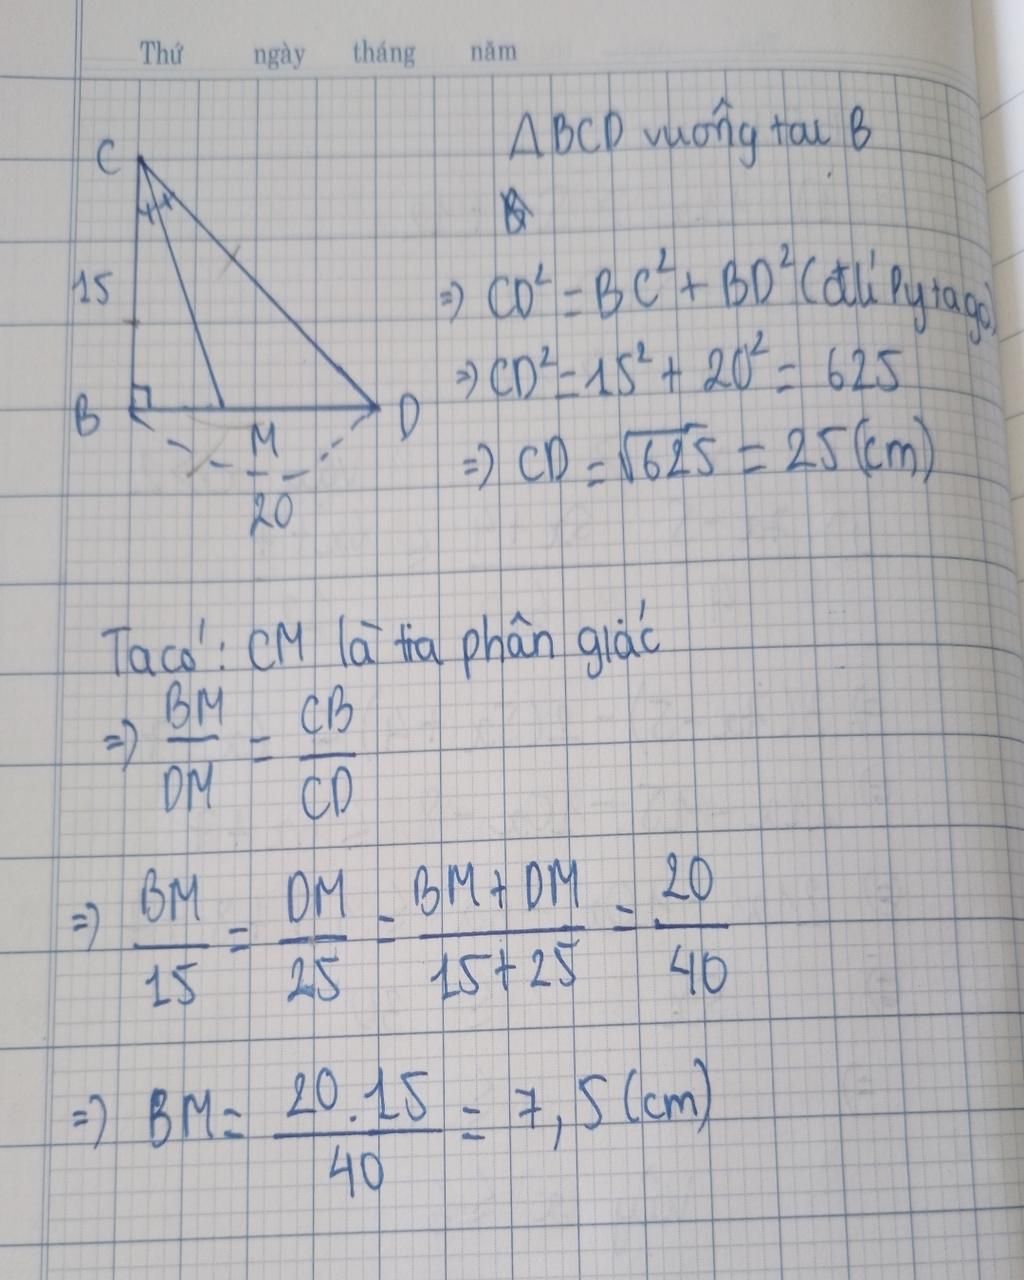 Thứ ngày tháng năm
C
15
B
D
M
20
ΔBCD vuông tại B
=> CD² = BC² + BD² (đ.lí Pytago)
=> CD² = 15² + 20² = 625
=> CD = √625 = 25 (cm)
Ta có: CM là tia phân giác
=> BM/DM = CB/CD
=> BM/15 = DM/25 = BM + DM/15 + 25 = 20/40
=> BM = 20.15/40 = 7,5 (cm)